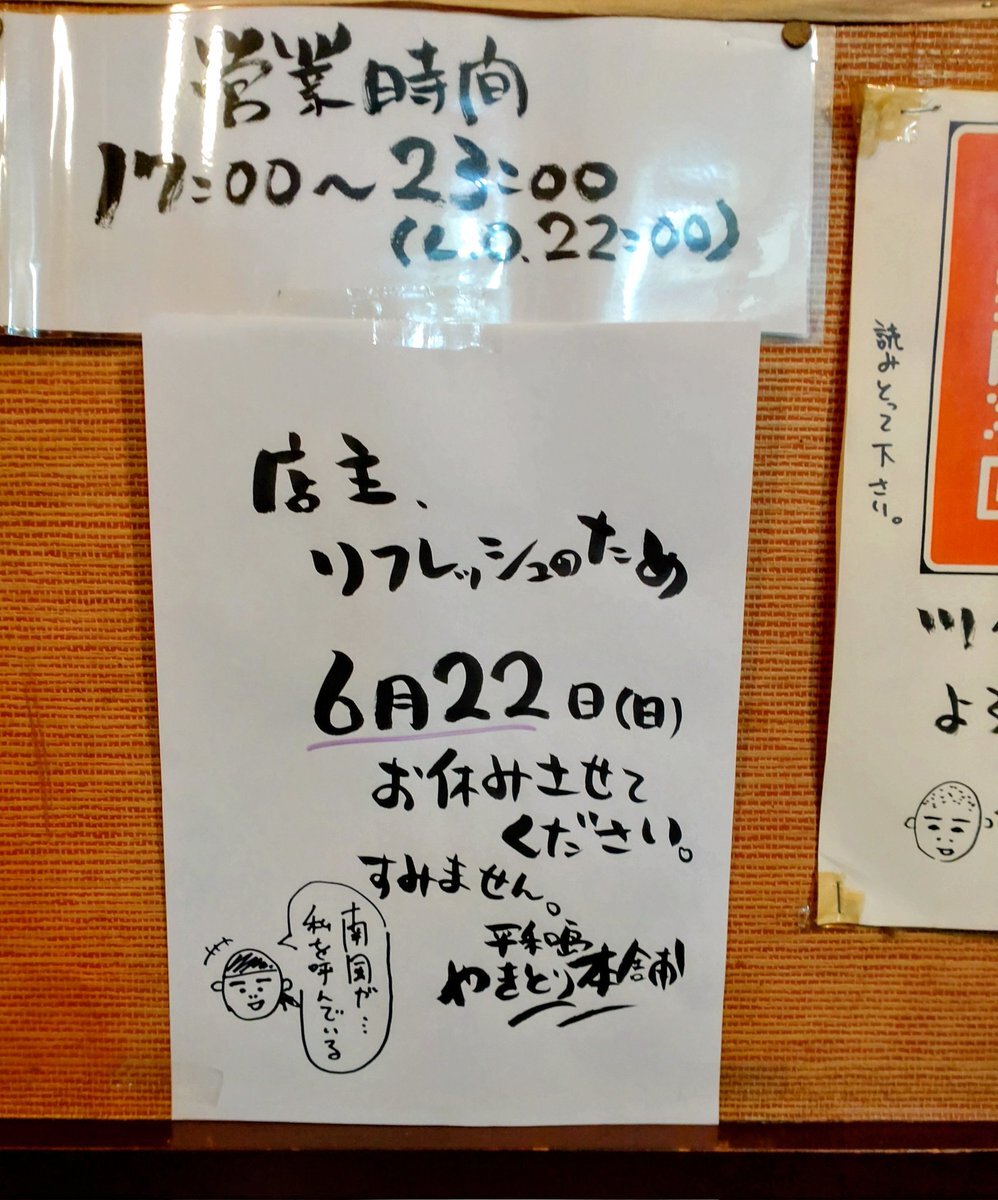 営業時間
17:00〜23:00
(L.O.22:00)
店主、
リフレッシュのため
6月22日(日)
お休みさせて
ください。
すみません。
平和島
やきとり本舗
南国が…
私を呼んでいる
読みとって下さい。